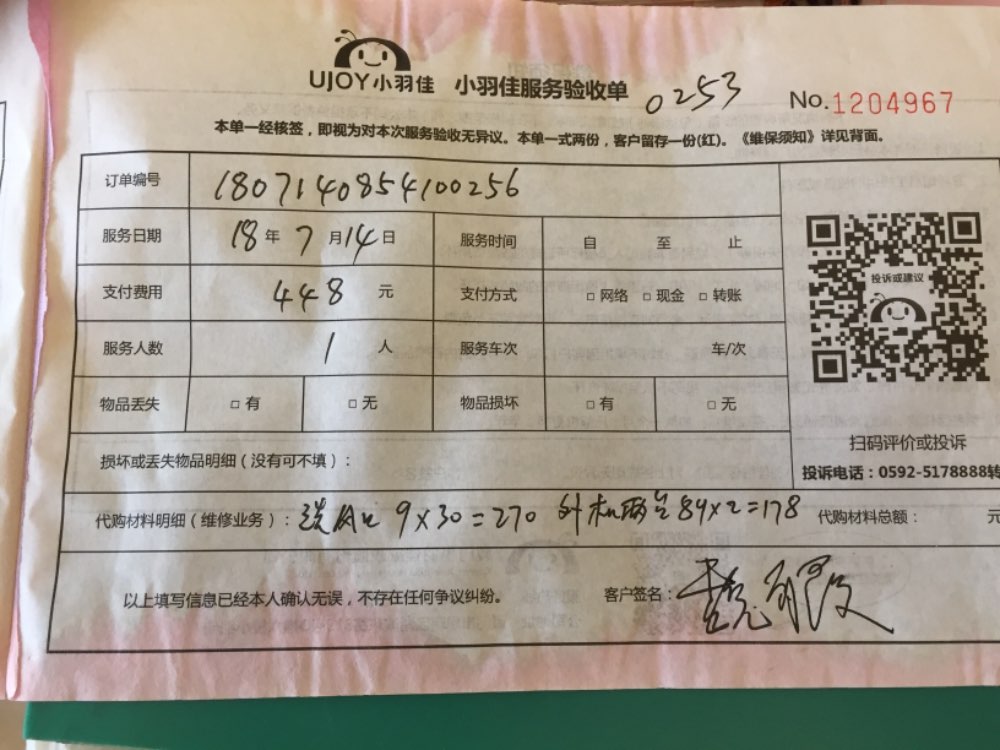 UJOY小羽佳 小羽佳服务验收单 0253 No.1204967
本单一经核签，即视为对本次服务验收无异议。本单一式两份，客户留存一份(红)。《维保须知》详见背面。
订单编号 1807140854100256
服务日期 18年7月14日 服务时间 自 至 止
支付费用 448 元 支付方式 □ 网络 □ 现金 □ 转账
服务人数 1 人 服务车次 车/次
物品丢失 □ 有 □ 无 物品损坏 □ 有 □ 无
投诉或建议
扫码评价或投诉
投诉电话：0592-5178888转
损坏或丢失物品明细（没有可不填）：
代购材料明细（维修业务）： 9×30=270 外机两台89×2=178 代购材料总额： 元
以上填写信息已经本人确认无误，不存在任何争议纠纷。 客户签名：